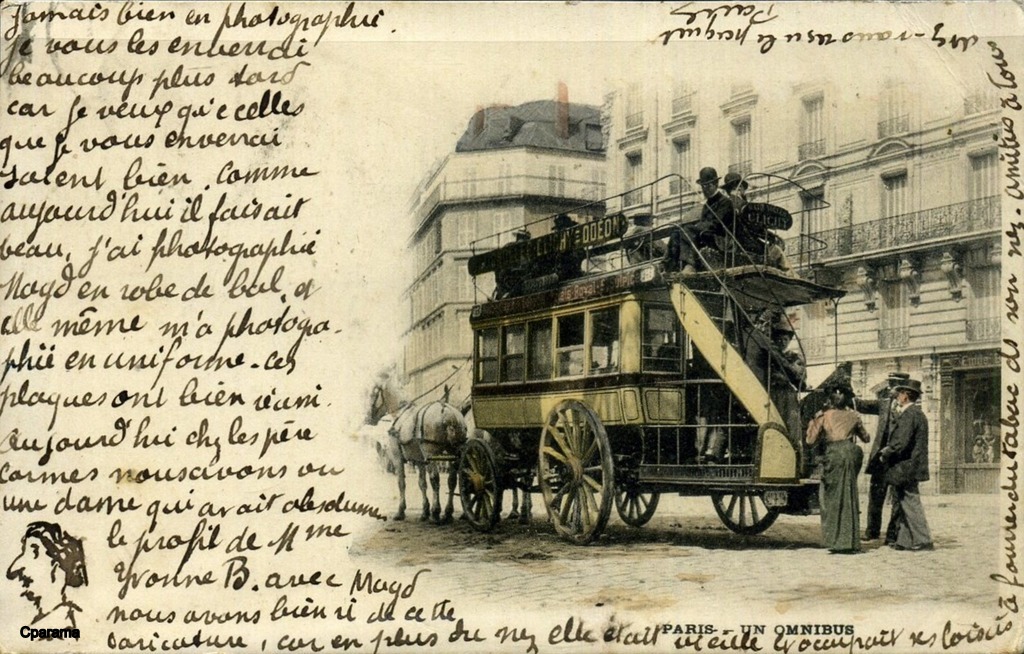 Jamais bien en photographie.
je vous les enverrai
beaucoup plus tard
car je veux qu'e celles
que je vous enverrai
soient bien. Comme
aujourd'hui il faisait
beau, j'ai photographié
Magd en robe de bal, et
elle même m'a photogra-
phié en uniforme. ces
plaques ont bien réussi.
aujourd'hui chez les père
Carmes nous avons vu
une dame qui avait absolumen
le profil de Mme
Yvonne B. avec Magd
nous avons bien ri de cette
caricature, car en plus du nez elle était vieille et occupait ses loisirs
à fourrer du tabac ds son nez. amitiés à tous
reçu le paquet
Paul
CLICHY-ODEON
CLICHY
PARIS - UN OMNIBUS
Cparama